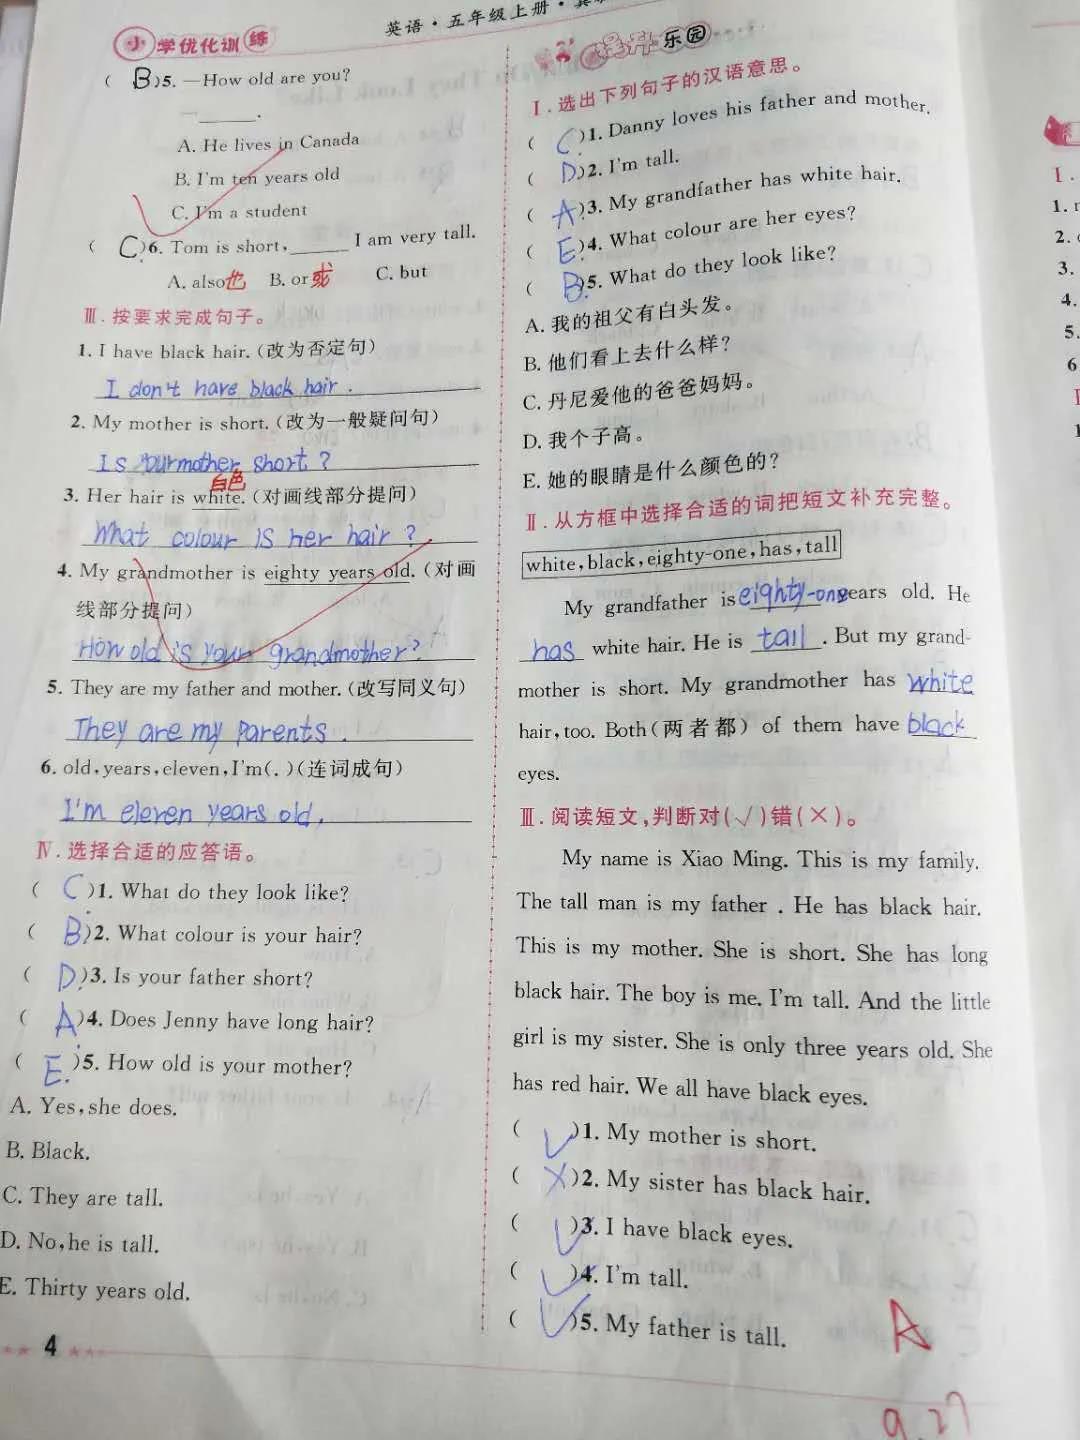 小学优化训练
英语·五年级上册·冀
( B )5. —How old are you?
—______.
A. He lives in Canada
B. I'm ten years old
C. I'm a student
( C )6. Tom is short,______ I am very tall.
A. also 也 B. or 或 C. but
Ⅲ.按要求完成句子。
1. I have black hair.(改为否定句)
I don't have black hair.
2. My mother is short.(改为一般疑问句)
Is your mother short?
白色
3. Her hair is white.(对画线部分提问)
What colour is her hair?
4. My grandmother is eighty years old.(对画
线部分提问)
How old is your grandmother?
5. They are my father and mother.(改写同义句)
They are my parents.
6. old,years,eleven,I'm(.)(连词成句)
I'm eleven years old.
Ⅳ.选择合适的应答语。
( C )1. What do they look like?
( B )2. What colour is your hair?
( D )3. Is your father short?
( A )4. Does Jenny have long hair?
( E )5. How old is your mother?
A. Yes,she does.
B. Black.
C. They are tall.
D. No,he is tall.
E. Thirty years old.
4
乐园
Ⅰ.选出下列句子的汉语意思。
( C )1. Danny loves his father and mother.
( D )2. I'm tall.
( A )3. My grandfather has white hair.
( E )4. What colour are her eyes?
( B )5. What do they look like?
A. 我的祖父有白头发。
B. 他们看上去什么样?
C. 丹尼爱他的爸爸妈妈。
D. 我个子高。
E. 她的眼睛是什么颜色的?
Ⅱ.从方框中选择合适的词把短文补充完整。
white,black,eighty-one,has,tall
My grandfather is eighty-one years old. He
has white hair. He is tall. But my grand-
mother is short. My grandmother has white
hair,too. Both(两者都) of them have black
eyes.
Ⅲ.阅读短文,判断对(√)错(×)。
My name is Xiao Ming. This is my family.
The tall man is my father . He has black hair.
This is my mother. She is short. She has long
black hair. The boy is me. I'm tall. And the little
girl is my sister. She is only three years old. She
has red hair. We all have black eyes.
( √ )1. My mother is short.
( × )2. My sister has black hair.
( √ )3. I have black eyes.
( √ )4. I'm tall.
( √ )5. My father is tall.
A
9.27